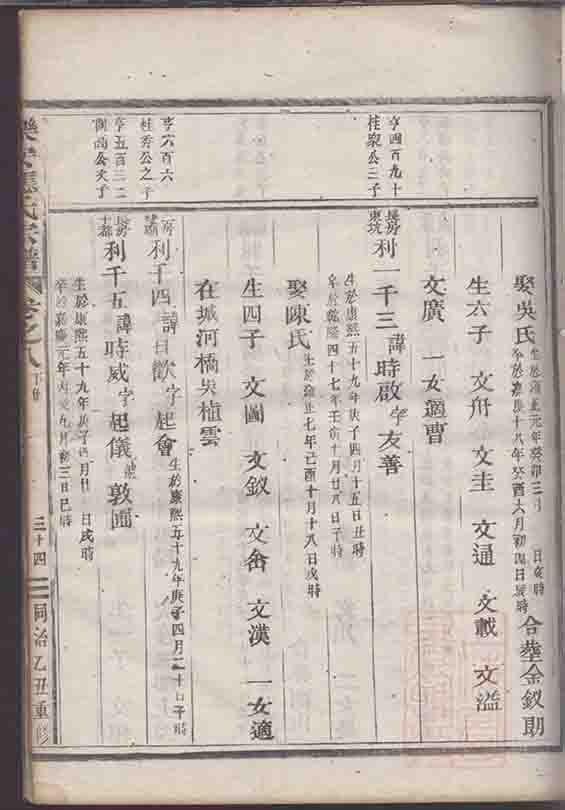 亨四百九十
桂泉公三子
亨六百六
桂秀公之子
亨五百三二
娶吳氏 生於雍正元年癸卯三月 日亥時 卒於嘉慶十八年癸酉六月初四日辰時 合葬金釵
生六子 文舟 文圭 文通 文載 文溢
文廣 一女適曹
長房東坑 利一千三 諱時啟 字友善
生於康熙五十九年庚子四月十五日丑時
卒於乾隆四十七年壬寅十月廿八日子時
娶陳氏 生於雍正七年己酉十月十八日戌時
生四子 文圖 文釵 文畣 文漢 一女適
在城河橋吳植雲
利千四 諱曰歡 字起會 生於康熙五十九年庚子四月二十日子時
長房 利千五 諱時威 字起儀 號敦圃
生於康熙五十九年庚子四月 日戌時
卒於嘉慶元年丙辰九月初三日巳時
氏宗譜 卷之八 三十四 同治乙丑重修